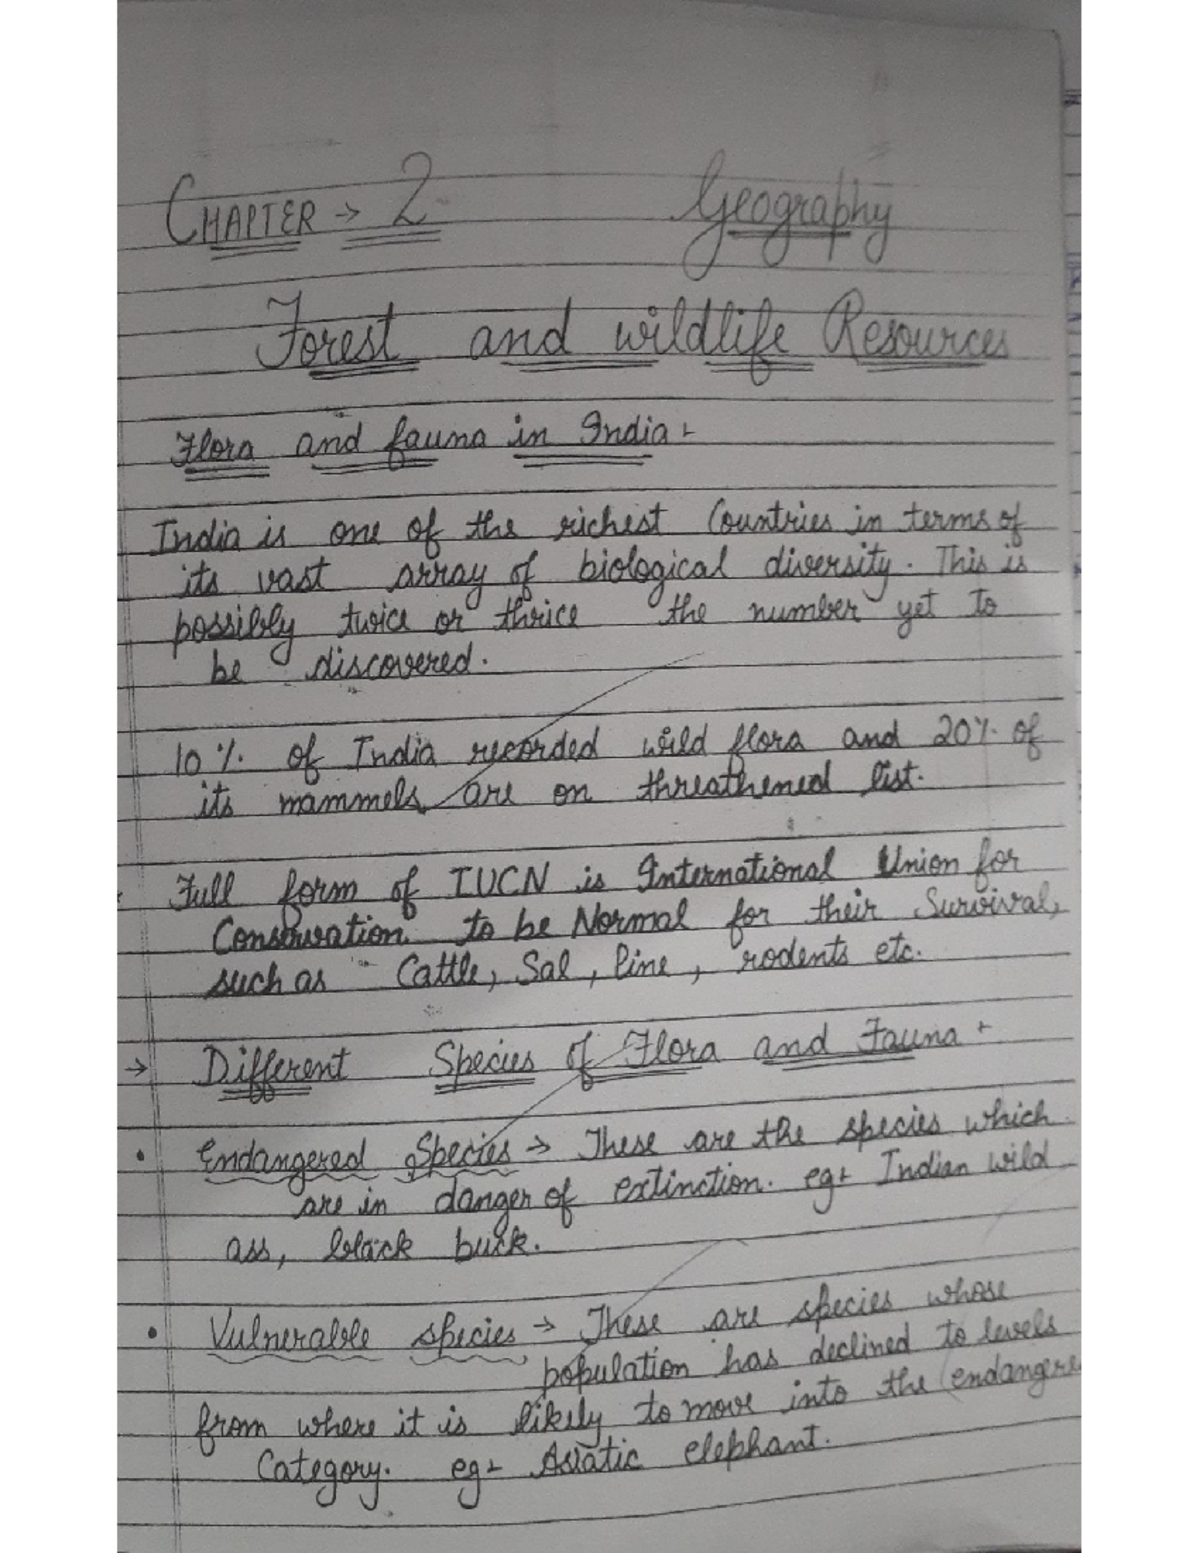 CHAPTER → 2 Geography
Forest and wildlife Resources
Flora and fauna in India :-
India is one of the richest Countries in terms of
its vast array of biological diversity. This is
possibly twice or thrice the number yet to
be discovered.
10 % of India recorded wild flora and 20% of
its mammels are on threathened list.
Full form of IUCN is International Union for
Conservation. to be Normal for their Survival,
such as Cattle, Sal, Pine, rodents etc.
→ Different Species of Flora and Fauna :-
• Endangered Species → These are the species which
are in danger of extinction. eg:- Indian wild
ass, black buck.
• Vulnerable species → These are species whose
population has declined to levels
from where it is likely to move into the endangere
Category. eg:- Asiatic elephant.